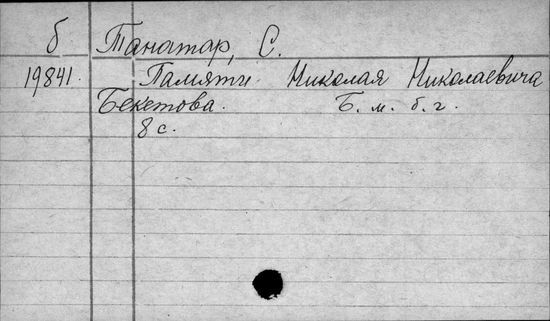 б Танатар, С.
19841. Памяти Николая Николаевича
Бекетова. Б. м. б. г.
8 с.